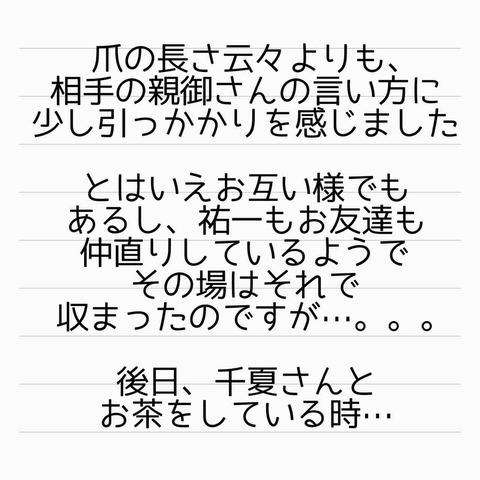 爪の長さ云々よりも、
相手の親御さんの言い方に
少し引っかかりを感じました
とはいえお互い様でも
あるし、祐一もお友達も
仲直りしているようで
その場はそれで
収まったのですが…。。。
後日、千夏さんと
お茶をしている時…